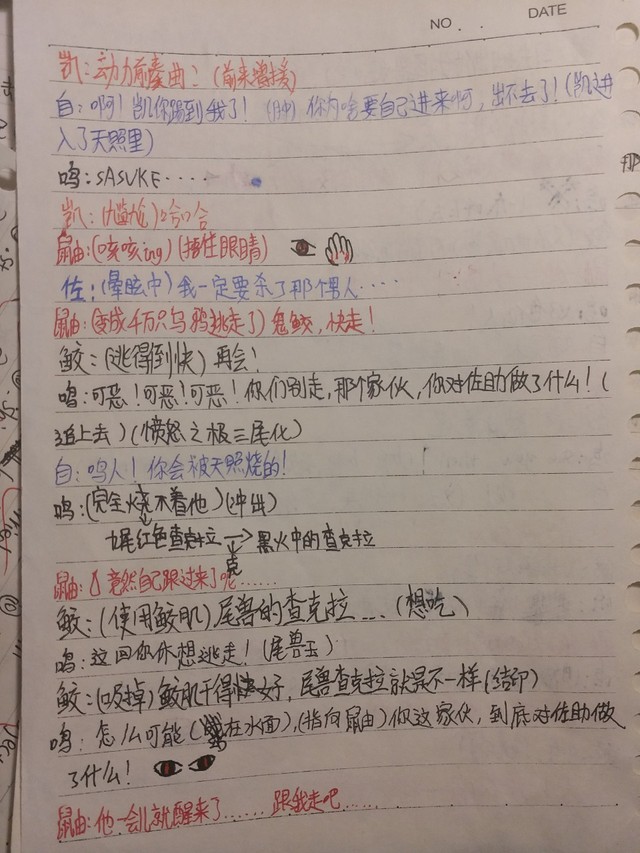 NO . . DATE
凯:动力前奏曲!(前来增援)
自:啊!凯你踢到我了!(肿)你为啥要自己进来啊,出不去了!(凯进
入了天照里)
鸣:SASUKE····
凯:(尴尬)哈哈
鼠由:(咳咳ing)(捂住眼睛)
佐:(晕眩中)我一定要杀了那个男人····
鼠由:(变成千万只乌鸦逃走了)鬼鲛,快走!
鲛:(逃得到快)再会!
鸣:可恶!可恶!可恶!你们别走,那个家伙,你对佐助做了什么!(
追上去)(愤怒之极三尾化)
自:鸣人!你会被天照烧的!
鸣:(完全烧不着他)(冲出)
九尾红色查克拉→黑火中的查克拉
克
鼠由:竟然自己跟过来了呢······
鲛:(使用鲛肌)尾兽的查克拉...(想吃)
鸣:这回你休想逃走!(尾兽玉)
鲛:(吸掉)鲛肌干得好,尾兽查克拉就是不一样(结印)
鸣:怎么可能(在水面),(指向鼠由)你这家伙,到底对佐助做
了什么!
鼠由:他一会儿就醒来了······跟我走吧······
那